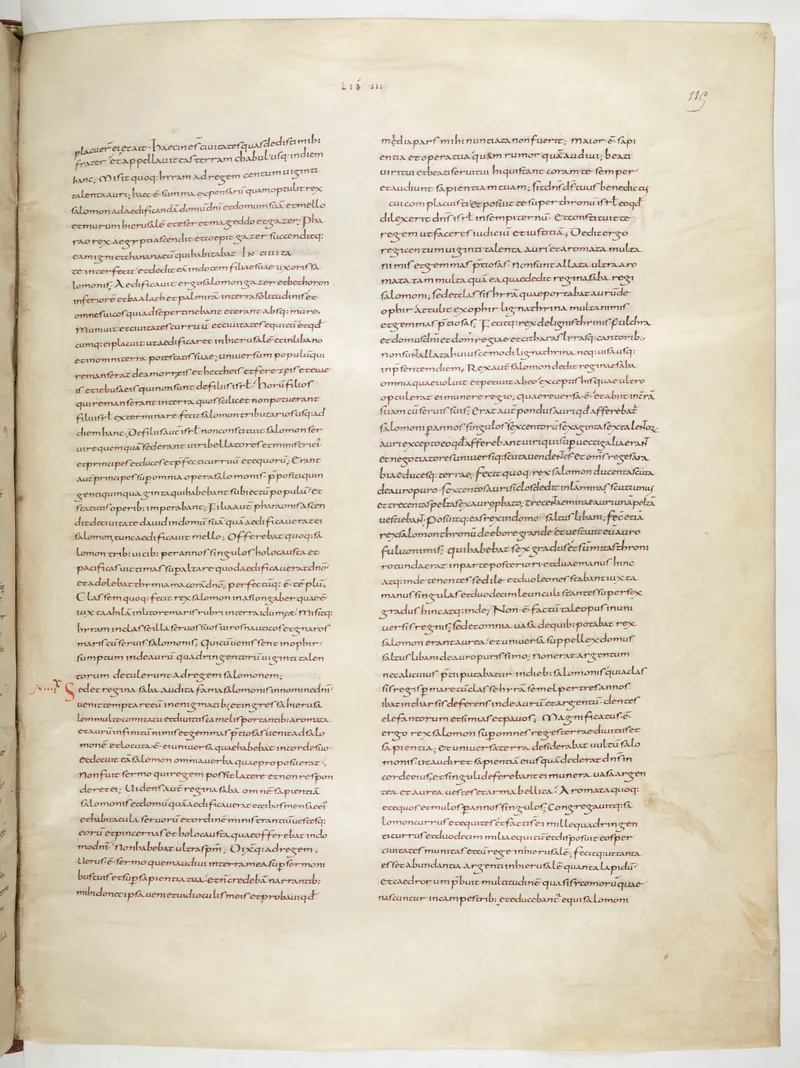 LIB III
115
placuer̄ ei; et ait · haecine s̄ ciuitates quas dedisti mihi
frater et appellauit eas terram chabul usq: indiem
hanc; Misit quoq: hyram ad regem centum uiginti
talenta auri; haec · ē · summa expensarū quam optulit rex
salomon ad aedificandā domū dn̄i et domum suā et mello
et murum hierusalē et eser et mageddo et gazer; Pha
rao rex aegypti ascendit et coepit gazer succenditq:
eam igni et chananaeū qui habitabat In ciuita
te interfecit et dedit eā indotem filiae suae uxori sa
lomonis; Aedificauit ergo salomon gazer et bechoron
inferiorē et baalath et palmirā interra solitudinis et
omnes uicos qui ad se pertinebant et erant absq: muro;
Muniuit et ciuitates curruū et ciuitates equitū et qd
cumq: ei placuit ut aedificaret inhierusalē et inlibano
et inomni terra potestatis suae; uniuersum populū qui
remanserat de amorreis et hettheis et ferezeis et euae
is et iebusaeis qui non sunt defiliis isrl · horū filios
qui remanserant interra quos scilicet non potuerant
filii isrl exterminare fecit salomon tributarios usq: ad
diem hanc; Defiliis aut̄ isrl non constituit salomon ser
uire quemquā sed erant uiri bellatores et ministri ei'
et principes et duces et p̄fecti curruū et equorū; Erant
aut̄ principes sup omnia opera salomonis p̄positi quin
genti quinquaginta qui habebant subiectū populū et
statutis operib; imperabant; Filia aut̄ pharaonis ascen
dit deciuitate dauid indomū suā quā aedificauerat ei
salomon; tunc aedificauit mello; Offerebat quoq: sa
lomon trib; uicib; per annos singulos holocausta et
pacificas uictimas sup altare quod aedificauerat dn̄o
et adolebat thymiama corā dn̄o; perfectūq: ē · tēplū;
Classem quoq: fecit rex salomon inasiongaber quae · ē ·
iuxta ahilā inlitore maris rubri interra idumeae; Misitq:
hyram inclasse illa seruos suos uiros nauticos et gnaros
maris cū seruis salomonis; Qui cū uenissent inophir
sumptum inde aurū quadringentorū uiginti talen
torum detulerunt ad regem salomonem;
Sed et regina saba audita fama salomonis innomine dn̄i
uenit temptare eū inenigmatib; et ingressa hierusa
lem multo comitatu et diuitiis camelis portantib; aromata
et aurū infinitū nimis et gemmas p̄tiosas uenit ad salo
monē et locuta · ē · ei uniuersa quae habebat incorde suo ·
et docuit eā salomon omnia uerba quae proposuerat ·;
Non fuit sermo qui regem posset latere et non respon
deret ei; Uidens aut̄ regina saba omnē sapientiā
salomonis et domū quā aedificauerat et cibos mensae ei'
et habitacula seruorū et ordinē ministrantiū uestesq:
eorū et pincernas et holocausta quae offerebat indo
mo dn̄i; Non habebat ultra spm̄; Dixitq: ad regem ·
Uerus · ē · sermo quem audiui interra mea sup sermoni
bus tuis et sup sapientia tua · et n̄ credebā narrantib;
mihi donec ipsa ueni et uidi oculis meis et probaui qd
media pars mihi nuntiata non fuerit; Maior · ē · sapi
entia et opera tua quā rumor quē audiui; beati
uiri tui et beati serui tui hi qui stant corā te semper ·
et audiunt sapientiam tuam; sit dn̄s d̄s tuus benedictus
cui complacuisti et posuit te super thronū isrl eo qd
dilexerit dn̄s isrl insempiternū · Et constituit te
regem ut faceres iudiciū et iustitiā; Dedit ergo
regi centum uiginti talenta auri et aromata multa
nimis et gemmas p̄tiosas; Non sunt allata ultra aro
mata tam multa quā ea quae dedit regina saba regi
salomoni; sed et classis hyrā quae portabat aurū de
ophir attulit ex ophir ligna thyina multa nimis
et gemmas p̄tiosas; Fecitq: rex delignis thyinis fulchra
et domus dn̄i et dom' regiae et citharas lyrasq: cantorib;
non sunt allata huiuscemodi ligna thyina neq: uisa usq:
inp̄sentem diem; Rex aut̄ salomon dedit reginae saba
omnia quae uoluit et petiuit abeo exceptis his quae ultro
optulerat ei munere regio; quae reuersa · ē · et abiit interrā
suam cū seruis suis; Erat aut̄ pondus auri qd afferebat̄
salomoni per annos singulos sexcentorū sexaginta sex talentor̄
auri excepto eo qd afferebant uiri qui sup uectigalia erant
et negotiatores uniuersiq: scruta uendentes et om̄s reges ara
biae ducesq: terrae; fecit quoq: rex salomon ducenta scuta
de auro puro · sexcentos auri siclos dedit inlāminas scuti unius
et trecentas peltas ex auro p̄bato; trecentae minae auri unā peltā
uestiebant; Posuitq: eas rex indomo · saltus libani; fecit etiā
rex salomon thronū deebore grandē et uestiuit eū auro
fuluo nimis; qui habebat sex gradus et sūmitas throni
rotunda erat inparte posteriori et duae manus hinc
atq: inde tenentes sedile et duo leones stabant iuxta
manus singulas et duodecim leunculi stantes super sex
gradus hinc atq: inde; Non · ē · factū tale opus inuni
uersis regnis; sed et omnia uasa de quib: potabat rex
salomon erant aurea · et uniuersa suppellex domus
saltus libani de auro purissimo; non erat argentum
nec alicuius p̄tii putabatur indieb: salomonis quia clas
sis regis p̄ mare cū classe hyrā semel per tres annos
ibat intharsis deferens inde aurū et argentū · dentes
elefantorum et simias et pauos; Magnificatus · ē ·
ergo rex salomon sup omnes reges terrae diuitiis et
sapientia; et uniuersa terra desiderabat uultū salo
monis · ut audiret sapientiā eius quā dederat d̄s in
corde eius; et singuli deferebant ei munera uasa argen
tea et aurea uestes et arma bellica · Aromata quoq:
et equos et mulos p̄ annos singulos; Congregauitq: sa
lomon currus et equites et facti s̄ ei mille quadringen
ti currus et duodecim milia equitū et disposuit eos per
ciuitates munitas et cū rege inhierusalē; fecitq: ut tanta
esset abundantia argenti inhierusalē quanta lapidū ·
et caedrorum p̄buit multitudinē quasi sycomorū quae
nascuntur incampestrib; et educebant̄ equi salomoni